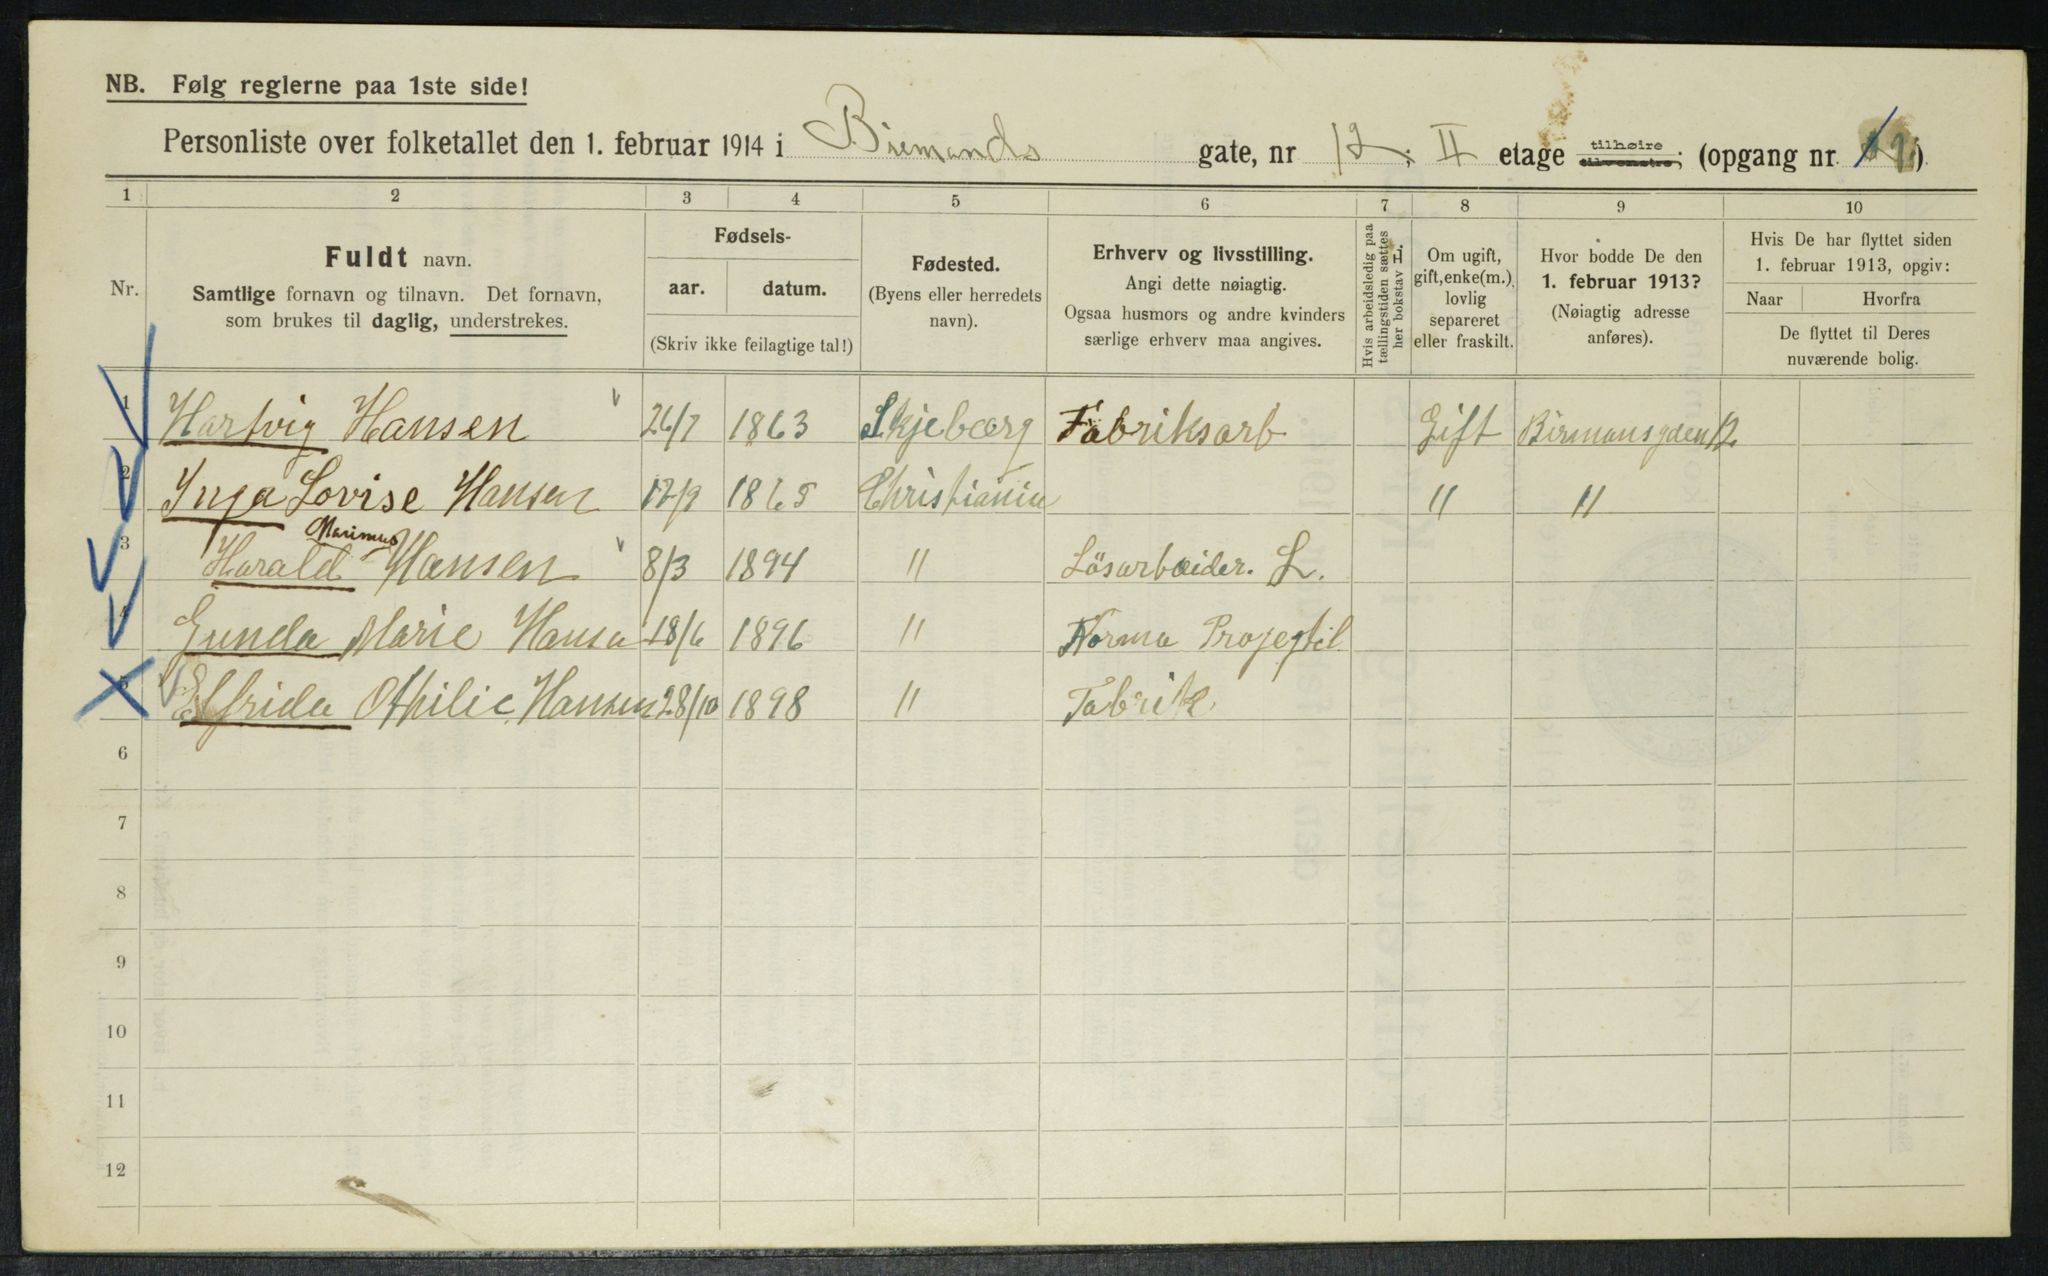 NB. Følg reglerne paa 1ste side!
Personliste over folketallet den 1. februar 1914 i Biemands gate, nr 12; II etage tilhøire tilvenstre; (opgang nr. )
1 2 3 4 5 6 7 8 9 10
Nr.
Fuldt navn.
Samtlige fornavn og tilnavn. Det fornavn,
som brukes til daglig, understrekes.
Fødsels-
aar. datum.
(Skriv ikke feilagtige tal!)
Fødested.
(Byens eller herredets
navn).
Erhverv og livsstilling.
Angi dette nøiagtig.
Ogsaa husmors og andre kvinders
særlige erhverv maa angives.
Hvis arbeidsledig paa
tællingstiden sættes
her bokstav L.
Om ugift,
gift, enke(m.),
lovlig
separeret
eller fraskilt.
Hvor bodde De den
1. februar 1913?
(Nøiagtig adresse
anføres).
Hvis De har flyttet siden
1. februar 1913, opgiv:
Naar Hvorfra
De flyttet til Deres
nuværende bolig.
1 Hartvig Hansen 26/7 1863 Skjeberg Fabriksarb Gift Birmansgden 12
2 Inga Lovise Hansen 12/9 1865 Christiania " "
3 Harald Marinus Hansen 8/3 1894 " Lösarbeider. L.
4 Gunda Marie Hansen 18/6 1896 " Norma Projegtil
5 Elfrida Othilie Hansen 28/10 1898 " Fabrik
6
7
8
9
10
11
12